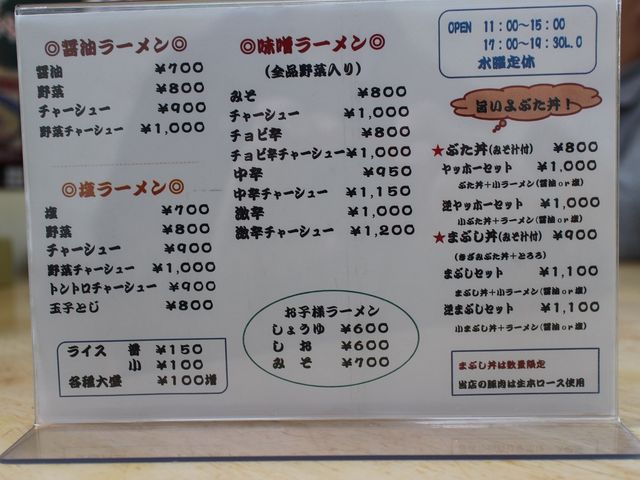 ◎醤油ラーメン◎
醤油 ¥700
野菜 ¥800
チャーシュー ¥900
野菜チャーシュー ¥1,000
◎塩ラーメン◎
塩 ¥700
野菜 ¥800
チャーシュー ¥900
野菜チャーシュー ¥1,000
トントロチャーシュー ¥900
玉子とじ ¥800
ライス 普 ¥150
小 ¥100
各種大盛 ¥100増
◎味噌ラーメン◎
(全品野菜入り)
みそ ¥800
チャーシュー ¥1,000
チョビ辛 ¥800
チョビ辛チャーシュー ¥1,000
中辛 ¥950
中辛チャーシュー ¥1,150
激辛 ¥1,000
激辛チャーシュー ¥1,200
お子様ラーメン
しょうゆ ¥600
しお ¥600
みそ ¥700
OPEN 11:00~15:00
17:00~19:30L.O
水曜定休
旨いよぶた丼!
★ぶた丼(みそ汁付) ¥800
ヤッホーセット ¥1,000
ぶた丼+小ラーメン(醤油or塩)
逆ヤッホーセット ¥1,000
小ぶた丼+ラーメン(醤油or塩)
★まぶし丼(みそ汁付) ¥900
(きざみぶた丼+とろろ)
まぶしセット ¥1,100
まぶし丼+小ラーメン(醤油or塩)
逆まぶしセット ¥1,100
小まぶし丼+ラーメン(醤油or塩)
まぶし丼は数量限定
当店の豚肉は生本ロース使用